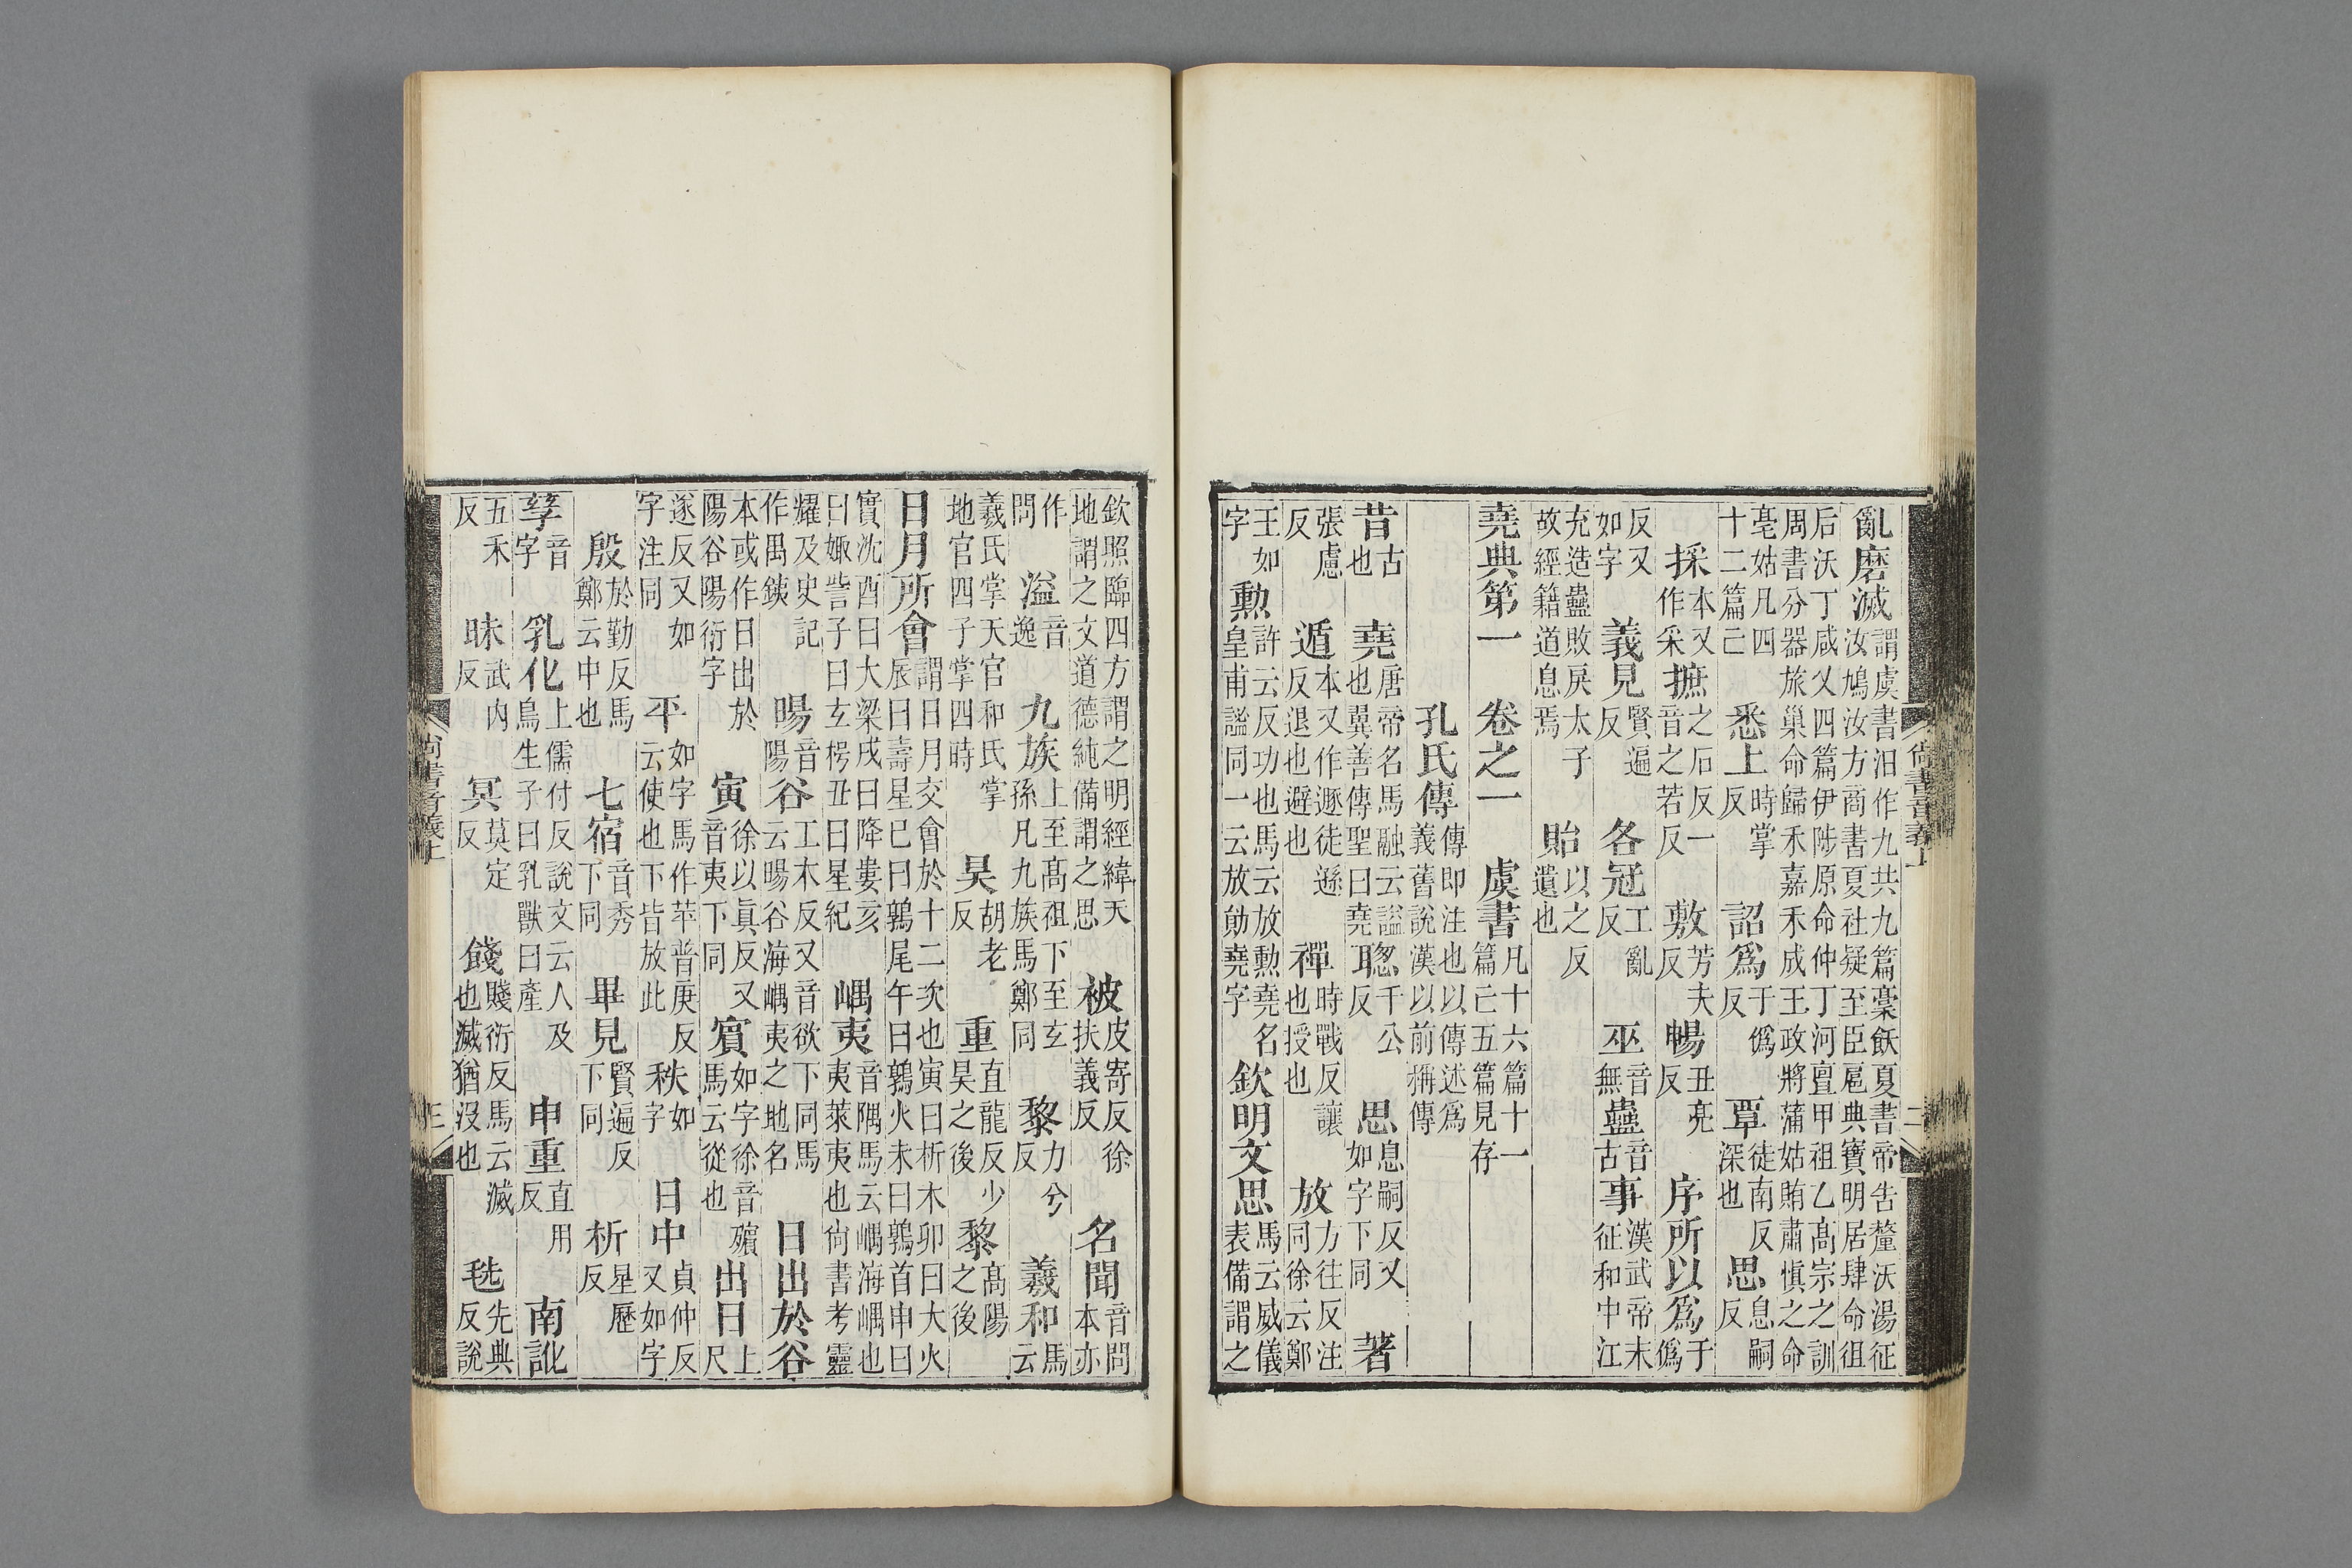 亂磨滅謂虞書汨作九共九篇稾飫夏書帝告釐沃湯征汝鳩汝方商書夏社疑至臣扈典寶明居肆命徂
后沃丁咸乂四篇伊陟原命仲丁河亶甲祖乙髙宗之訓周書分器旅巢命歸禾嘉禾成王政將蒲姑賄肅愼之命
亳姑凡四十二篇亡 悉上時掌反 詔爲于僞反 覃徒南反深也 思息嗣反
採本又作采 摭之石反一音之若反 敷芳夫反 暢丑亮反 序所以爲于僞
反又如字 義見賢遍反 各冠工亂反 巫音無 蠱音古 事漢武帝末征和中江
充造蠱敗戾太子故經籍道息焉 貽以之反遺也
堯典第一 卷之一 虞書凡十六篇十一篇亡五篇見存
孔氏傳傳即注也以傳述爲義舊說漢以前稱傳
昔古也 堯唐帝名馬融云謚也翼善傳聖曰堯 聦千公反 思息嗣反又如字下同 著
張慮反 遁本又作遯徒遜反退也避也 禪時戰反讓也授也 放方往反注同徐云鄭
王如字 勲許云反功也馬云放勲堯名皇甫謐同一云放勛堯字 欽明文思馬云威儀表備謂之
尙書音義上 二
欽照臨四方謂之明經緯天地謂之文道德純備謂之思 被皮寄反徐扶義反 名聞音問本亦
作問 溢音逸 九族上至髙祖下至玄孫凡九族馬鄭同 黎力兮反 羲和馬云
羲氏掌天官和氏掌地官四子掌四時 昊胡老反 重直龍反少昊之後 黎髙陽之後
日月所會謂日月交會於十二次也寅曰析木卯曰大火辰曰壽星巳曰鶉尾午曰鶉火未曰鶉首申曰
實沈酉曰大梁戌曰降婁亥曰娵訾子曰玄枵丑曰星紀 嵎夷音隅馬云嵎海嵎也夷萊夷也尙書考靈
耀及史記作禺銕 暘音陽 谷工木反又音欲下同馬云暘谷海嵎夷之地名 日出於谷
本或作日出於陽谷陽衍字 寅徐以眞反又音夷下同 賓如字徐音殯馬云從也 出日上尺
遂反又如字注同 平如字馬作苹普庚反云使也下皆放此 秩如字 日中貞仲反又如字
殷於勤反馬鄭云中也 七宿音秀下同 畢見賢遍反下同 析星歷反
孳音字 乳化上儒付反說文云人及鳥生子曰乳獸曰產 申重直用反 南訛
五禾反 昧武內反 冥莫定反 餞賤衍反馬云滅也滅猶沒也 毨先典反說
尙書音義上 三